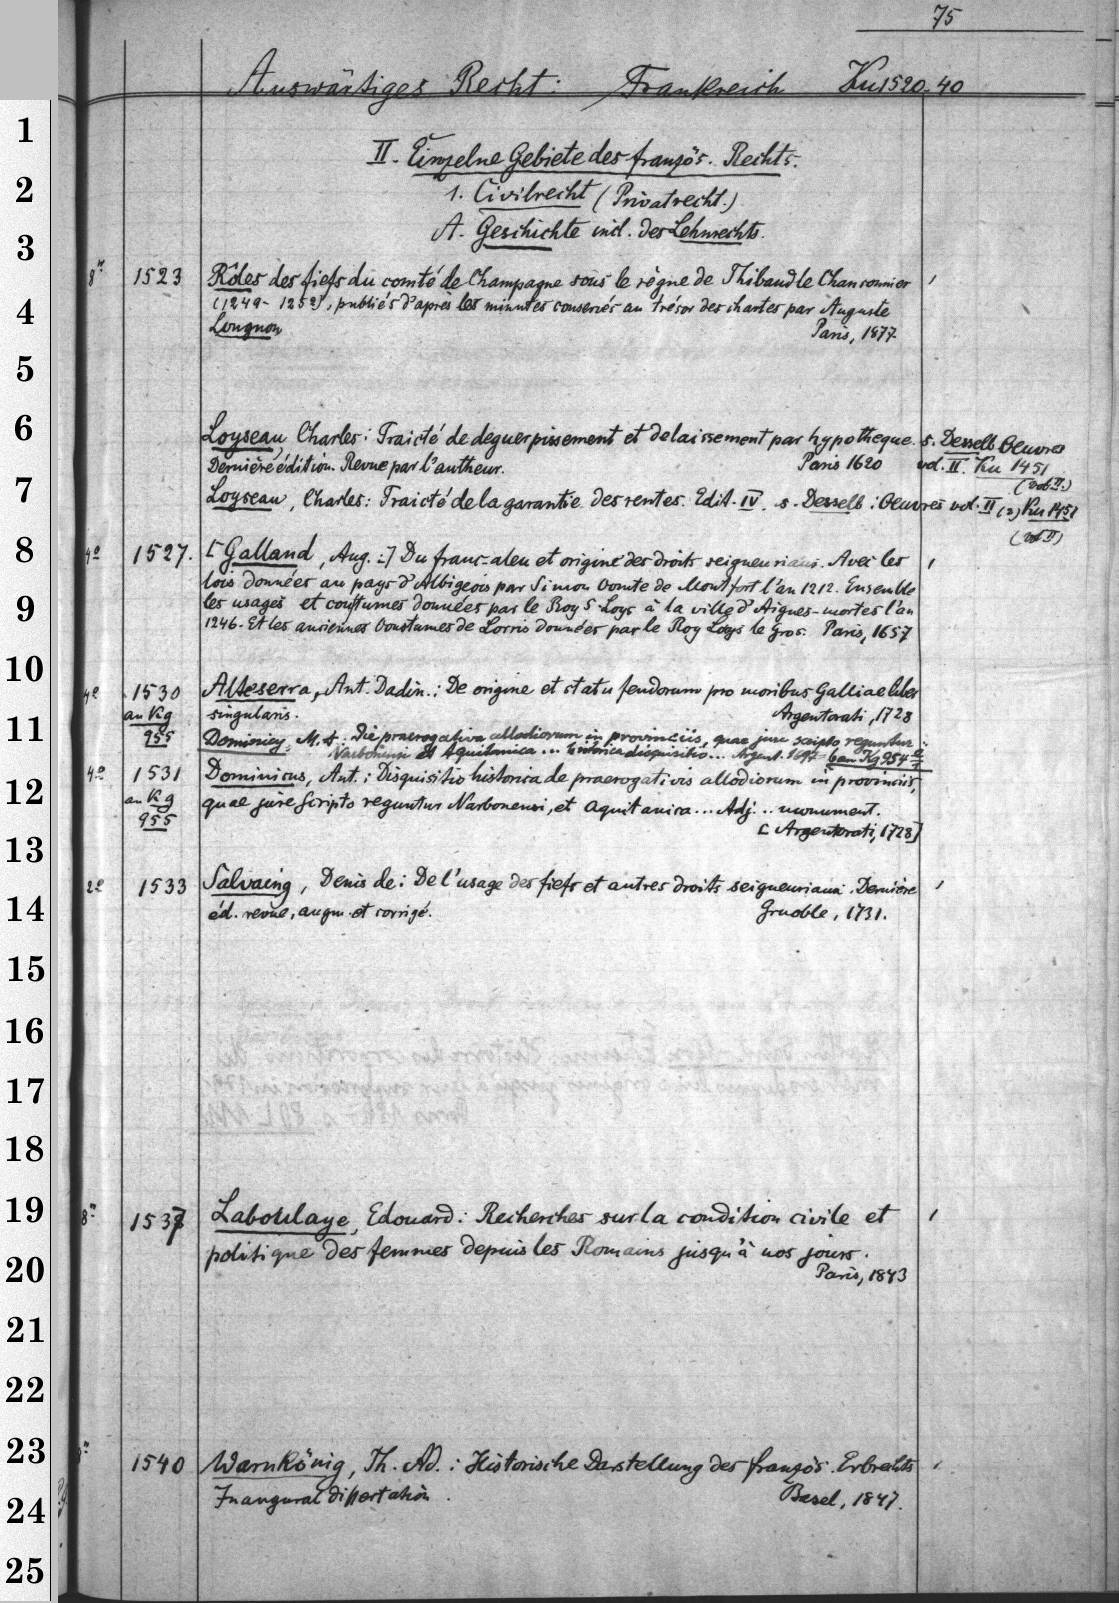 75
Auswärtiges Recht: Frankreich Ku 1520-40
1
II. Einzelne Gebiete des französ. Rechts.
2
1. Civilrecht (Privatrecht.)
3
A. Geschichte incl. des Lehnrechts.
8° 1523 Rôles des fiefs du comté de Champagne sous le règne de Thibaud le Chansonnier
4
(1249-1252), publiés d'après les minutes conservés au trésor des chartes par Auguste
Longnon Paris, 1877
5
6
Loyseau, Charles: Traicté de deguerpissement et delaissement par hypotheque. s. Desselb. Oeuvres
Dernière édition. Revue par l'autheur. Paris 1620 vol. II. Ku 1451
(vol. II.)
7
Loyseau, Charles: Traicté de la garantie des rentes. Edit. IV. s. Desselb: Oeuvres vol. II (2) Ku 1451
(vol II)
8
4° 1527. [Galland, Aug.:] Du franc-aleu et origine des droits seigneuriaux. Avec les
lois données au pays d'Albigeois par Simon Comte de Montfort l'an 1212. Ensemble
9
les usages et couftumes données par le Roy S. Loys à la ville d'Aigues-mortes l'an
1246. Et les anciennes Coustumes de Lorris données par le Roy Loys le Gros. Paris, 1657
10
4° 1530 Alteserra, Ant. Dadin.: De origine et statu feudorum pro moribus Galliae liber
an Kg singularis. Argentorati, 1728
11
955 Dominicy, M. A.: De praerogativa allodiorum in provinciis, quae jure scripto reguntur
Narbonensi et Aquitanica ... historica disquisitio... Argent. 6 an Kg 954
4° 1531 Dominicus, Ant.: Disquisitio historica de praerogativis allodiorum in provinciis,
12
an Kg quae jure scripto reguntur Narbonensi, et Aquitanica ... Adj. .. monument.
955 [Argentorati, 1728]
13
2° 1533 Salvaing, Denis de: De l'usage des fiefs et autres droits seigneuriaux. Dernière
14
éd. revue, augm. et corrigé. Grenoble, 1731.
15
16
17
18
19
8° 1537 Laboulaye, Edouard: Recherches sur la condition civile et
politique des femmes depuis les Romains jusqu'à nos jours.
20
Paris, 1843
21
22
23
1540 Warnkönig, Th. Ad.: Historische Darstellung des französ. Erbrechts
24
Inaugural dissertation. Basel, 1847.
25